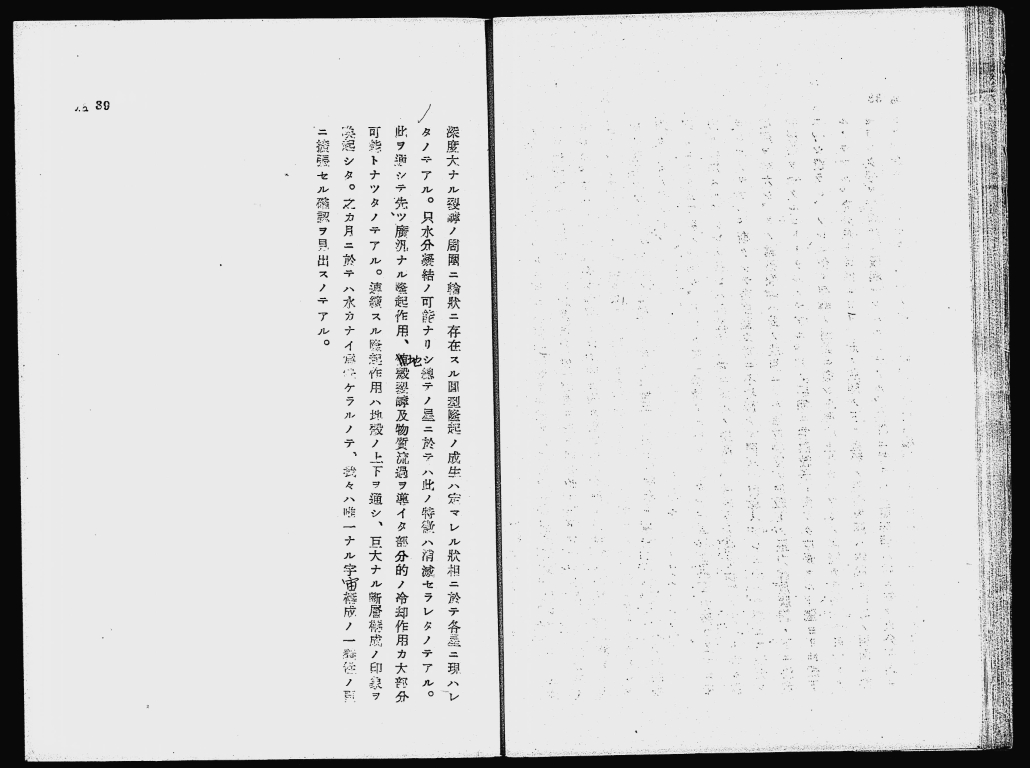 深度大ナル裂罅ノ周圍ニ輪狀ニ存在スル圓型隆起ノ成生ハ定マレル狀相ニ於テ各星ニ現ハレ
タノテアル。只水分凝結ノ可能ナリシ總テノ星ニ於テハ此ノ特徵ハ消滅セラレタノテアル。
此ヲ通シテ先ツ廣汎ナル隆起作用、地殼裂罅及物質流過ヲ導イタ部分的ノ冷却作用カ大部分
可能トナツタノテアル。連續スル隆起作用ハ地殼ノ上下ヲ通シ、巨大ナル斷層構成ノ印象ヲ
喚起シタ。之カ月ニ於テハ水カナイ ケラルノテ、我々ハ唯一ナル宇宙構成ノ一 ノ
ニ擴張セル確認ヲ見出スノテアル。
39